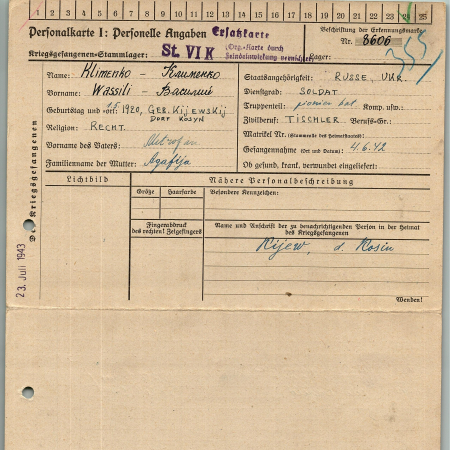 1 2 3 4 5 6 7 8 9 10 11 12 13 14 15 16 17 18 19 20 21 22 23 24 25
Personalkarte I: Personelle Angaben
Ersatzkarte
Beschriftung der Erkennungsmarke
Nr. 3606
Kriegsgefangenen-Stammlager: St. VI K
Orig.-Karte durch
Feindeinwirkung vernichtet
Lager:
Des Kriegsgefangenen
Name: Klimenko - Клименко
Vorname: Wassili - Василий
Geburtstag und -ort: 1920, GEB. KIJEWSKIJ
DORF KOSYN
Religion: RECHT.
Vorname des Vaters: Mitrofan
Familienname der Mutter: Agafija
Staatsangehörigkeit: RUSSE, UKR.
Dienstgrad: SOLDAT
Truppenteil: pionier bat. Komp. usw.:
Zivilberuf: TISCHLER Berufs-Gr.:
Matrikel Nr. (Stammrolle des Heimatstaates):
Gefangennahme (Ort und Datum): 4.6.42
Ob gesund, krank, verwundet eingeliefert:
Lichtbild
Nähere Personalbeschreibung
Größe
Haarfarbe
Besondere Kennzeichen:
Fingerabdruck
des rechten! Zeigefingers
Name und Anschrift der zu benachrichtigenden Person in der Heimat
des Kriegsgefangenen
Kijew, d. Kosin
Wenden!
23. Juli 1943